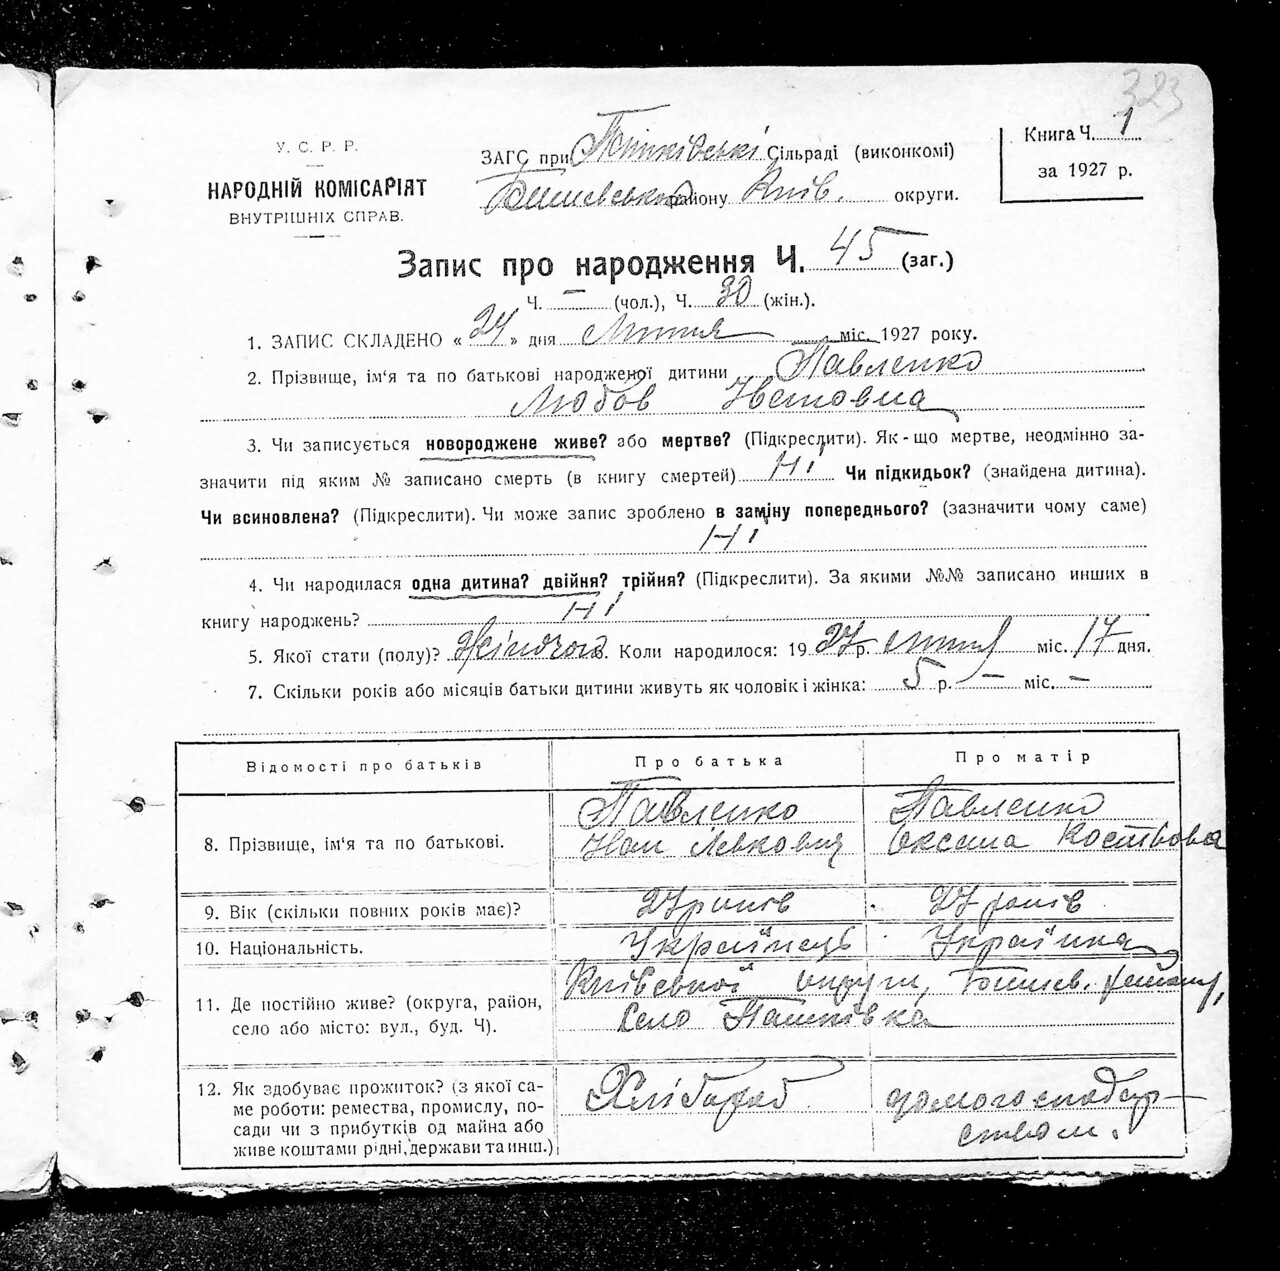 323
У. С. Р. Р.
НАРОДНІЙ КОМІСАРІЯТ
ВНУТРІШНІХ СПРАВ.
ЗАГС при Сільраді (виконкомі)
району Київ. округи.
Книга Ч. 1
за 1927 р.
Запис про народження Ч. 45 (заг.)
Ч. — (чол.), Ч. 30 (жін.).
1. ЗАПИС СКЛАДЕНО « 24 » дня липня міс. 1927 року.
2. Прізвище, ім'я та по батькові народженої дитини Павленко
Любов Івановна
3. Чи записується новороджене живе? або мертве? (Підкреслити). Як-що мертве, неодмінно за-
значити під яким № записано смерть (в книгу смертей) Ні Чи підкидьок? (знайдена дитина).
Чи всиновлена? (Підкреслити). Чи може запис зроблено в заміну попереднього? (зазначити чому саме)
Ні
4. Чи народилася одна дитина? двійня? трійня? (Підкреслити). За якими №№ записано инших в
книгу народжень? Ні
5. Якої стати (полу)? Жіночої. Коли народилося: 1927 р. липня міс. 17 дня.
7. Скільки років або місяців батьки дитини живуть як чоловік і жінка: 5 р. — міс. —
Відомості про батьків
Про батька
Про матір
8. Прізвище, ім'я та по батькові.
Павленко
Іван Левкович
Павленко
Оксана Костьвова
9. Вік (скільки повних років має)?
27 років
27 років
10. Національність.
Українець
Українка
11. Де постійно живе? (округа, район,
село або місто: вул., буд. Ч).
Київської округи, Бишев. району,
село Пашківка
12. Як здобуває прожиток? (з якої са-
ме роботи: ремества, промислу, по-
сади чи з прибутків од майна або
живе коштами рідні, держави та инш.)
Хлібороб
домогосподар-
ством.